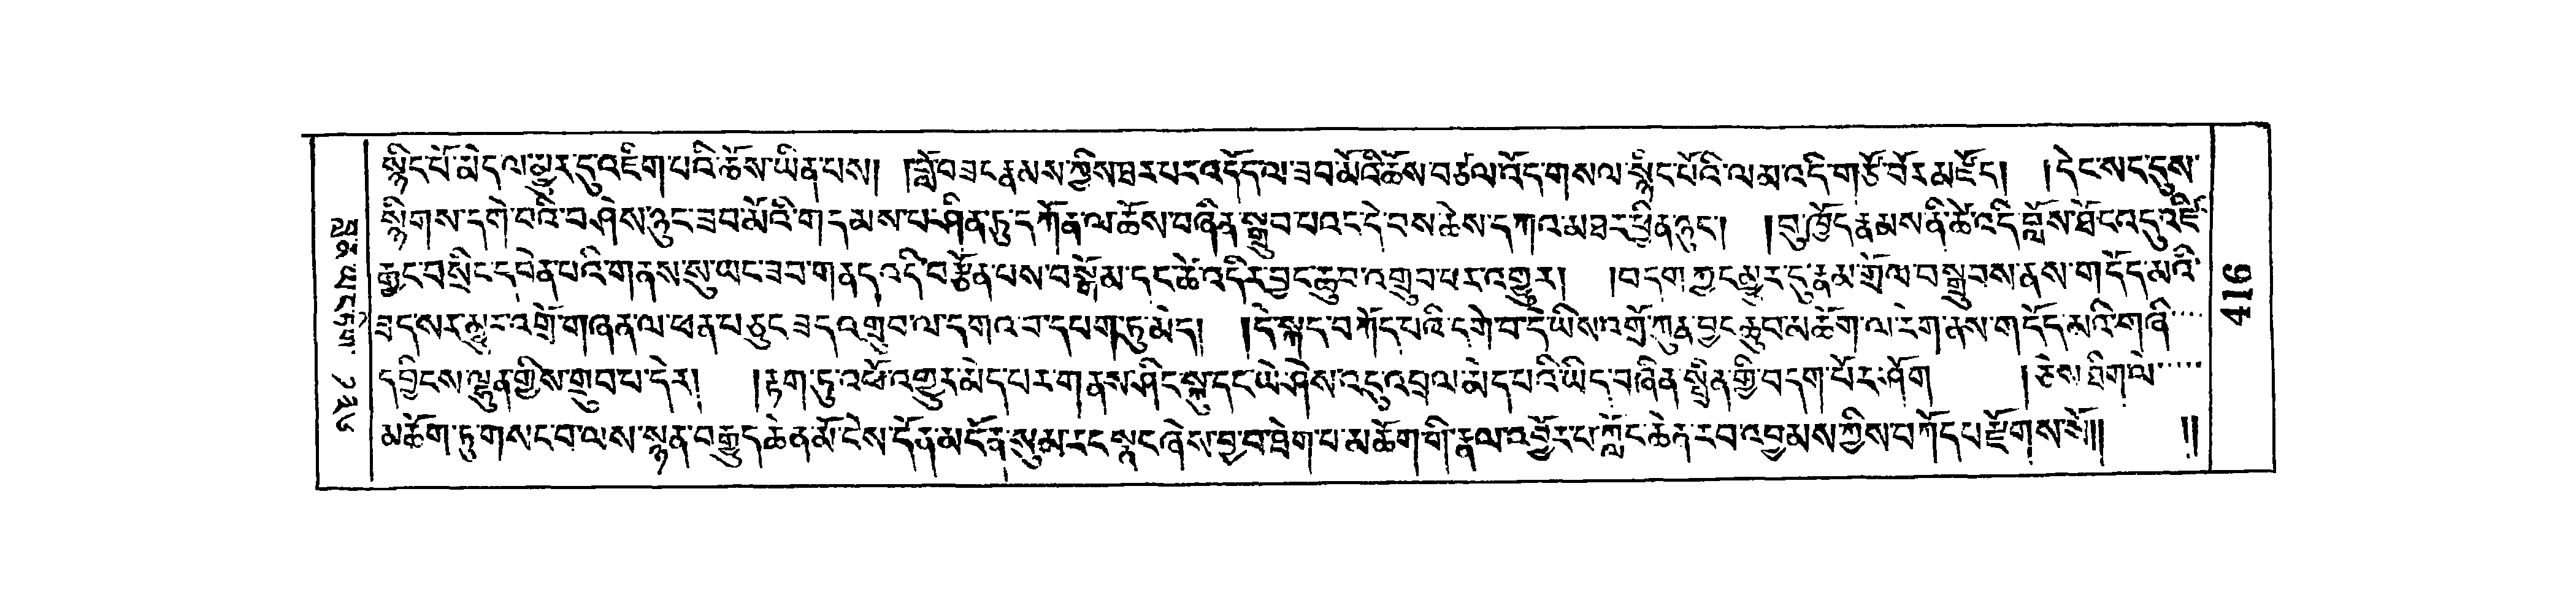 སྙིང་པོ་མེད་ལ་མྱུར་དུ་འཇིག་པའི་ཆོས་ཡིན་པས། །བློ་བཟང་རྣམས་ཀྱིས་ཐར་པར་འདོད་ལ་ཟབ་མོའི་ཆོས་བཙལ་འོད་གསལ་སྙིང་པོའི་ལམ་འདི་གཙོ་བོར་མཛོད། །དེང་སང་དུས་
སྙིགས་དགེ་བའི་བཤེས་ཉུང་ཟབ་མོའི་གདམས་པ་ཤིན་ཏུ་དཀོན་ལ་ཆོས་བཞིན་སྒྲུབ་པའང་དེ་བས་ཆེས་དཀའ་མཐར་ཕྱིན་ཉུང་། །བུ་ཁྱོད་རྣམས་ནི་ཚེ་འདི་བློས་ཐོང་འདུ་འཛི་
རྒྱང་བསྲིང་དབེན་པའི་གནས་སུ་ཡང་ཟབ་གནད་འདི་བརྩོན་པས་བསྒོམ་དང་ཚེ་འདིར་བྱང་ཆུབ་འགྲུབ་པར་འགྱུར། །བདག་ཀྱང་མྱུར་དུ་རྣམ་གྲོལ་བསྒྲུབས་ནས་གདོད་མའི་
ཟད་སར་མྱུར་འགྲོ་གཞན་ལ་ཕན་པ་ཅུང་ཟད་འགྲུབ་ལ་དགའ་བ་དཔག་ཏུ་མེད། །དེ་སྐད་བཀོད་པའི་དགེ་བ་དེ་ཡིས་འགྲོ་ཀུན་བྱང་ཆུབ་མཆོག་ལ་རེག་ནས་གདོད་མའི་གཞི་
དབྱིངས་ལྷུན་གྱིས་གྲུབ་པ་དེར། །རྟག་ཏུ་འཕོ་འགྱུར་མེད་པར་གནས་ཤིང་སྐུ་དང་ཡེ་ཤེས་འདུ་འབྲལ་མེད་པའི་ཡིད་བཞིན་སྤྲིན་གྱི་བདག་པོར་ཤོག །ཅེས་ཐིག་ལེ་
མཆོག་ཏུ་གསང་བ་ལས་སྙན་བརྒྱུད་ཆེན་མོ་ངེས་དོན་མངོན་སུམ་རང་སྣང་ཞེས་བྱ་བ་ཐེག་པ་མཆོག་གི་རྣལ་འབྱོར་པ་ཀློང་ཆེན་རབ་འབྱམས་ཀྱིས་བཀོད་པ་རྫོགས་སོ།། །།